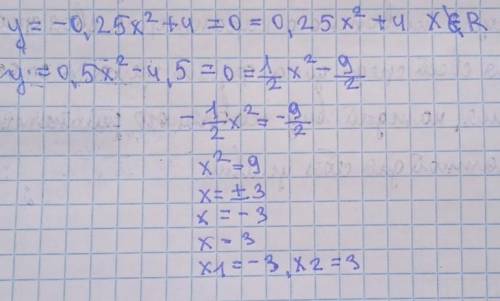 y = -0,25x² + 4 = 0 = 0,25x² + 4 x∉R
y = 0,5x² - 4,5 = 0 = 1/2 x² - 9/2
- 1/2 x² = - 9/2
x² = 9
x = ± 3
x = -3
x = 3
x1 = -3, x2 = 3